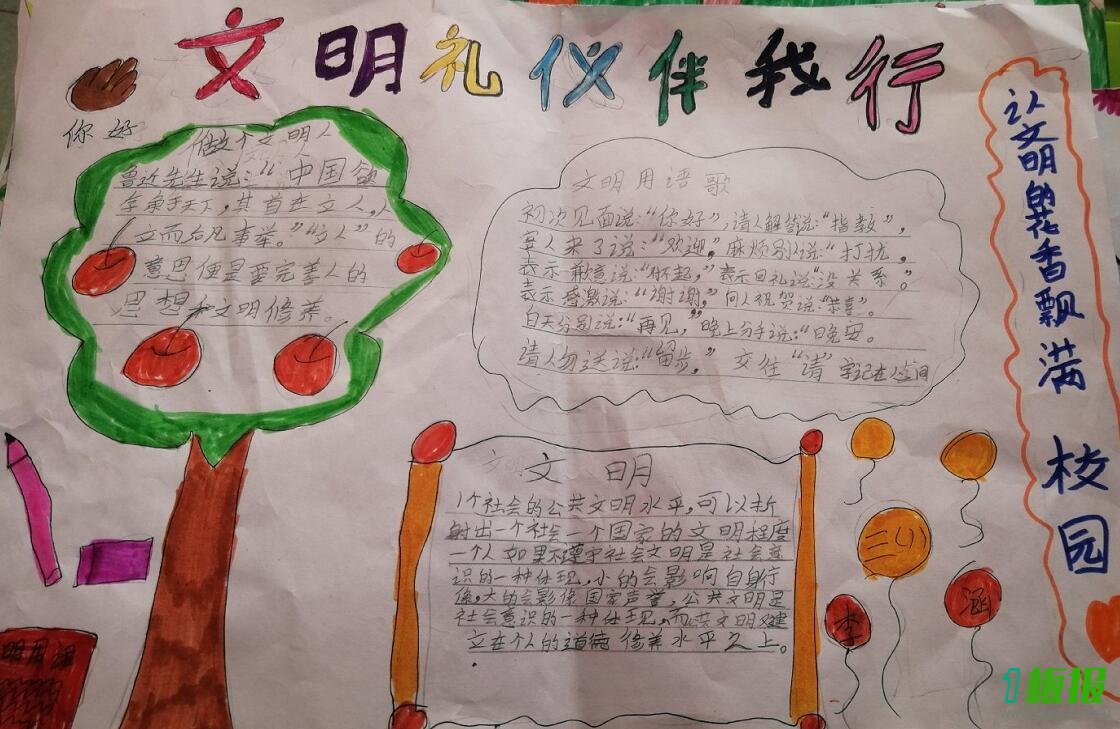 文明礼仪伴我行
你好
做个文明人
鲁迅先生说:“中国欲
存争于天下,其首在立人,人
立而后凡事举。”“立人”的
意思便是要完善人的
思想和文明修养。
文明用语歌
初次见面说:“你好”,请人解答说:“指教”,
客人来了说:“欢迎”麻烦别人说:“打扰,
表示歉意说:“怀起,”表示回礼说:“没关系。
表示感激说:“谢谢,”向人祝贺说:“恭喜”。
白天分别说:“再见,”晚上分手说:“晚安。
请人勿送说:“留步,”交往“请”字记在心间
文明
1个社会的公共文明水平,可以折
射出一个社会一个国家的文明程度
一个人如果不遵守社会文明是社会意
识的一种体现,小的会影响自身行
像,大的会影像国家声誉,公共文明是
社会意识的一种体现,而公共文明又建
立在个人的道德修养水平之上。
三(1)
李
涵
让文明的花香飘满校园
明用语
1板报